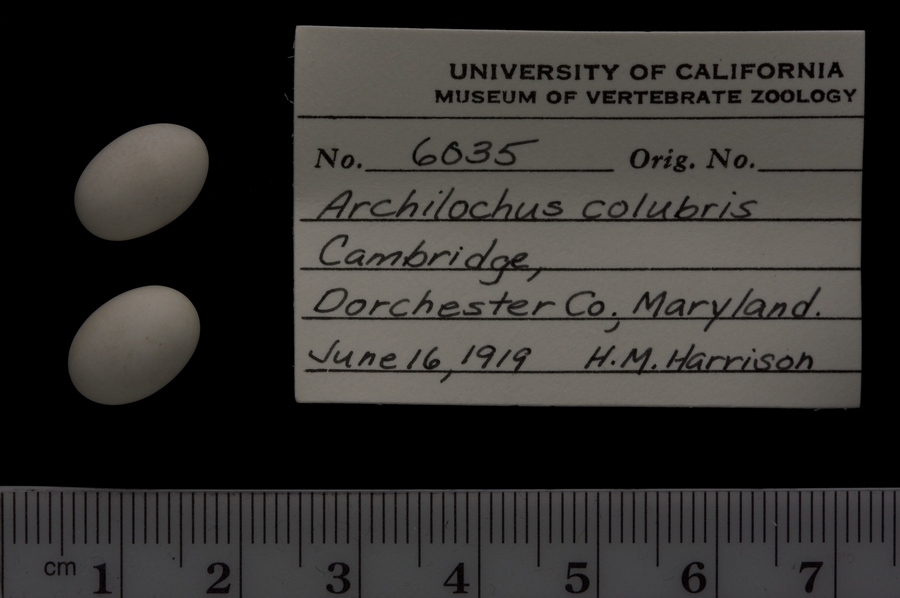 UNIVERSITY OF CALIFORNIA
MUSEUM OF VERTEBRATE ZOOLOGY
No. 6035 Orig. No.
Archilochus colubris
Cambridge,
Dorchester Co., Maryland.
June 16, 1919 H.M. Harrison
cm 1 2 3 4 5 6 7